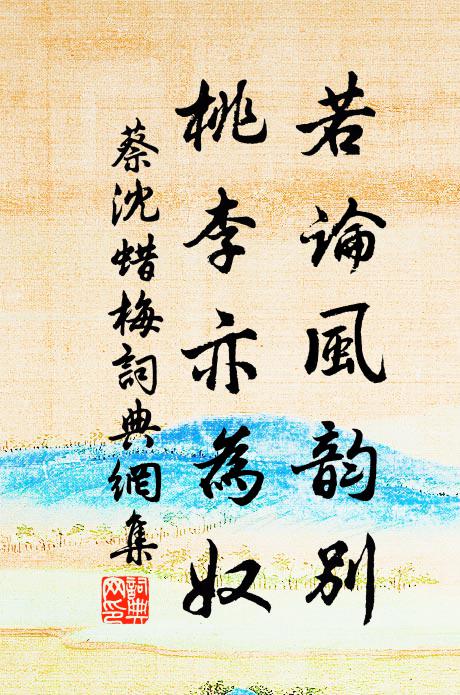 若論風韵別
桃李亦為奴
蔡沈蜡梅詞典網集
詞典
网印